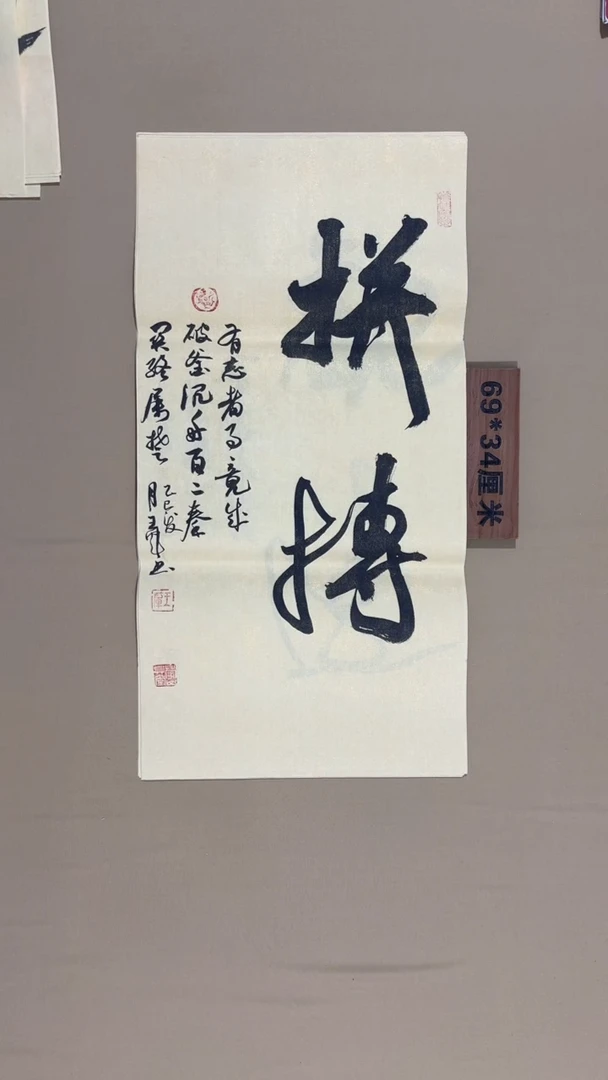 拼搏
有志者事竟成
破釜沉舟百二秦
关终属楚
乙巳
69*34厘米